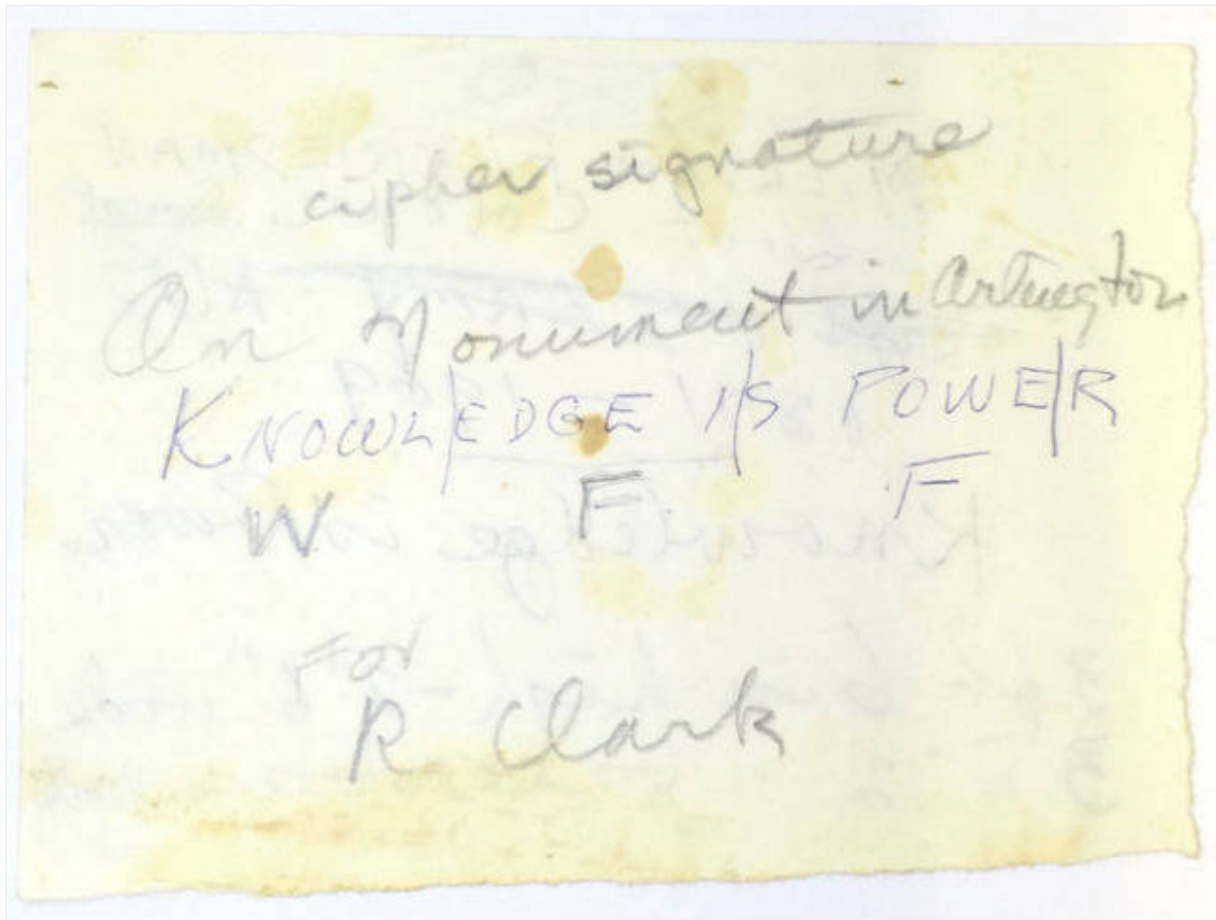 cipher signature
On Monument in Arlington
KNOWL|EDGE I|S POWE|R
W F F
For
R Clark